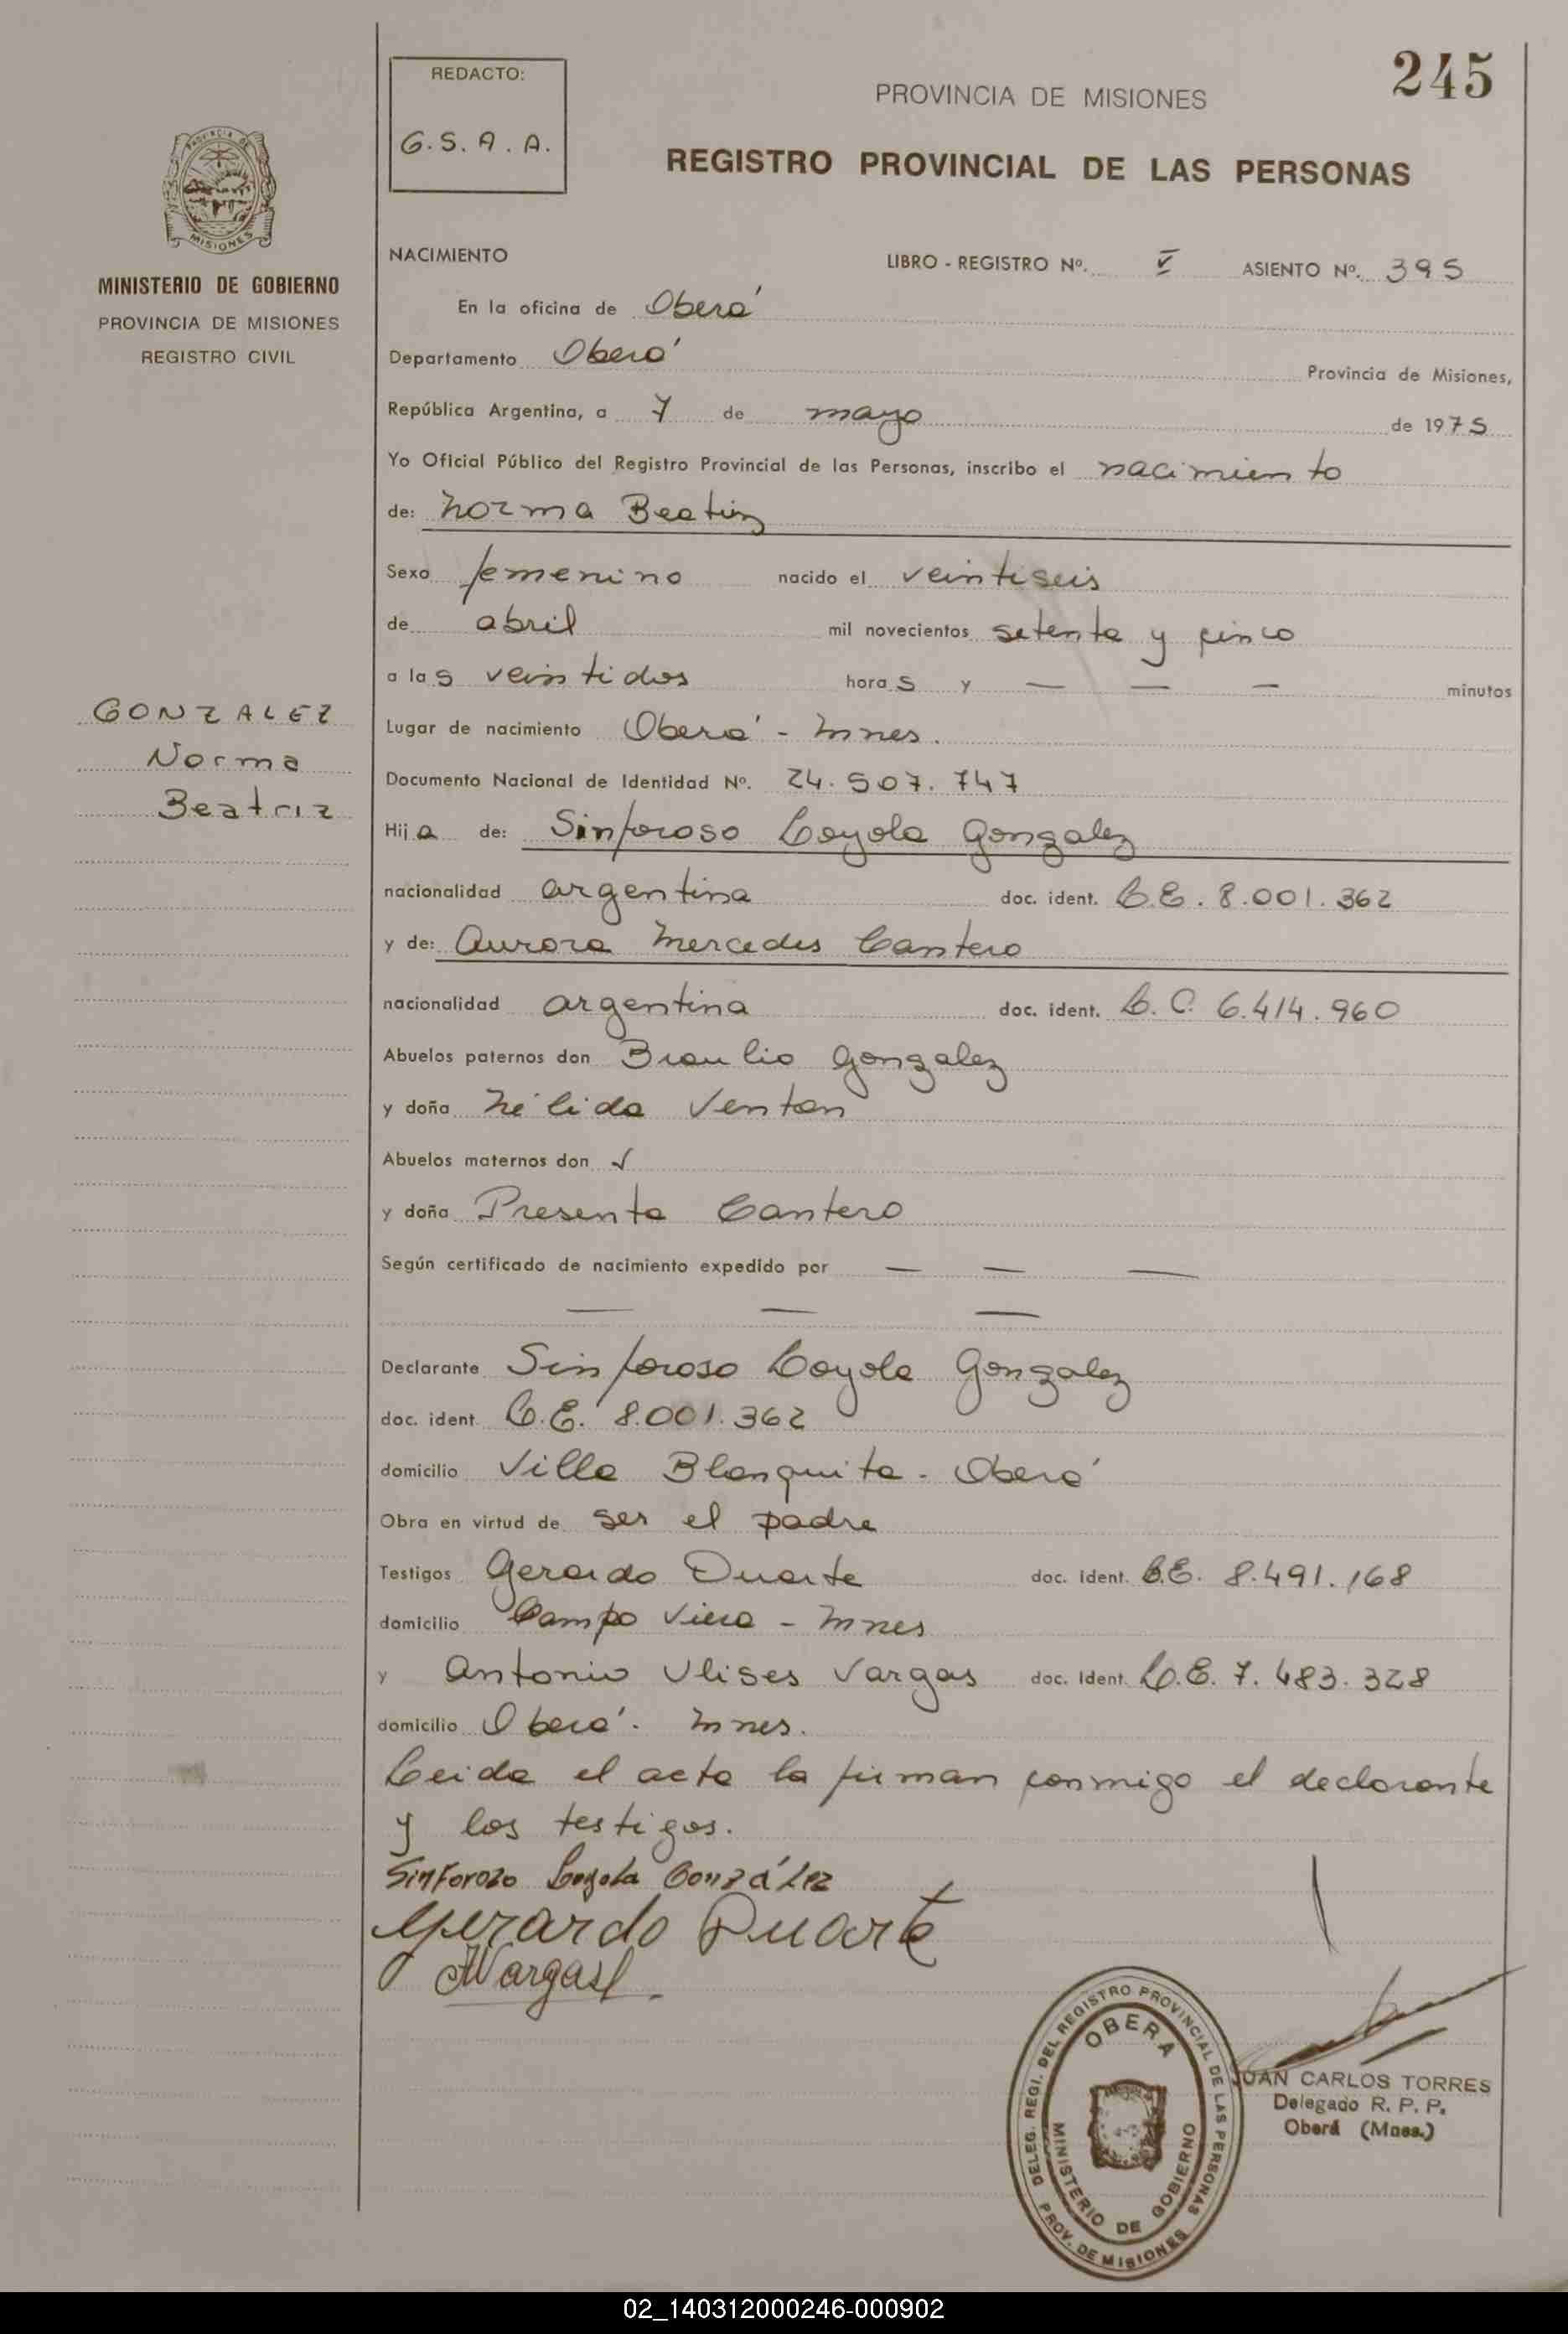 245
REDACTO:
G. S. A. A.
PROVINCIA DE MISIONES
REGISTRO PROVINCIAL DE LAS PERSONAS
PROVINCIA DE MISIONES
MINISTERIO DE GOBIERNO
PROVINCIA DE MISIONES
REGISTRO CIVIL
NACIMIENTO
LIBRO - REGISTRO Nº. V ASIENTO Nº. 395
En la oficina de Oberá
Departamento Oberá Provincia de Misiones,
República Argentina, a 7 de mayo de 1975
Yo Oficial Público del Registro Provincial de las Personas, inscribo el nacimiento
de: Norma Beatriz
Sexo femenino nacido el veintiseis
de abril mil novecientos setenta y cinco
a las veintidos horas y — — — minutos
GONZALEZ
Norma
Beatriz
Lugar de nacimiento Oberá - Mnes.
Documento Nacional de Identidad Nº. 24.507.747
Hija de: Sinforoso Loyola Gonzalez
nacionalidad argentina doc. ident. L.E. 8.001.362
y de: Aurora Mercedes Cantero
nacionalidad argentina doc. ident. L.C. 6.414.960
Abuelos paternos don Braulio Gonzalez
y doña Nélida Ventan
Abuelos maternos don
y doña Presenta Cantero
Según certificado de nacimiento expedido por — — —
— — —
Declarante Sinforoso Loyola Gonzalez
doc. ident. L.E. 8.001.362
domicilio Villa Blanquita - Oberá
Obra en virtud de ser el padre
Testigos Gerardo Duarte doc. ident. L.E. 8.491.168
domicilio Campo Viera - Mnes
y Antonio Ulises Vargas doc. Ident. L.E. 7.483.328
domicilio Oberá. Mnes.
Leida el acta la firman conmigo el declarante
y los testigos.
Sinforozo Loyola González
Gerardo Duarte
AVargas
DELEG. REGI. DEL REGISTRO PROVINCIAL DE LAS PERSONAS
OBERA
MINISTERIO DE GOBIERNO
PROV. DE MISIONES
JUAN CARLOS TORRES
Delegado R. P. P.
Oberá (Mnes.)
02_140312000246-000902